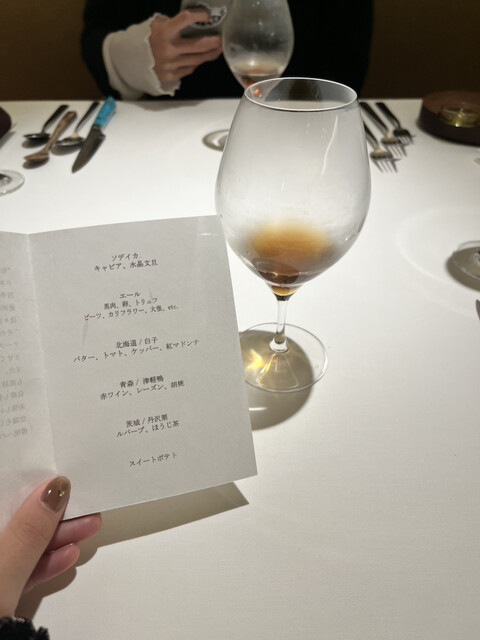 ソデイカ
キャビア、水晶文旦
エール
馬肉、卵、トリュフ
ビーツ、カリフラワー、大根、etc.
北海道 / 白子
バター、トマト、ケッパー、紅マドンナ
青森 / 津軽鴨
赤ワイン、レーズン、胡桃
茨城 / 丹沢栗
ルバーブ、ほうじ茶
スイートポテト